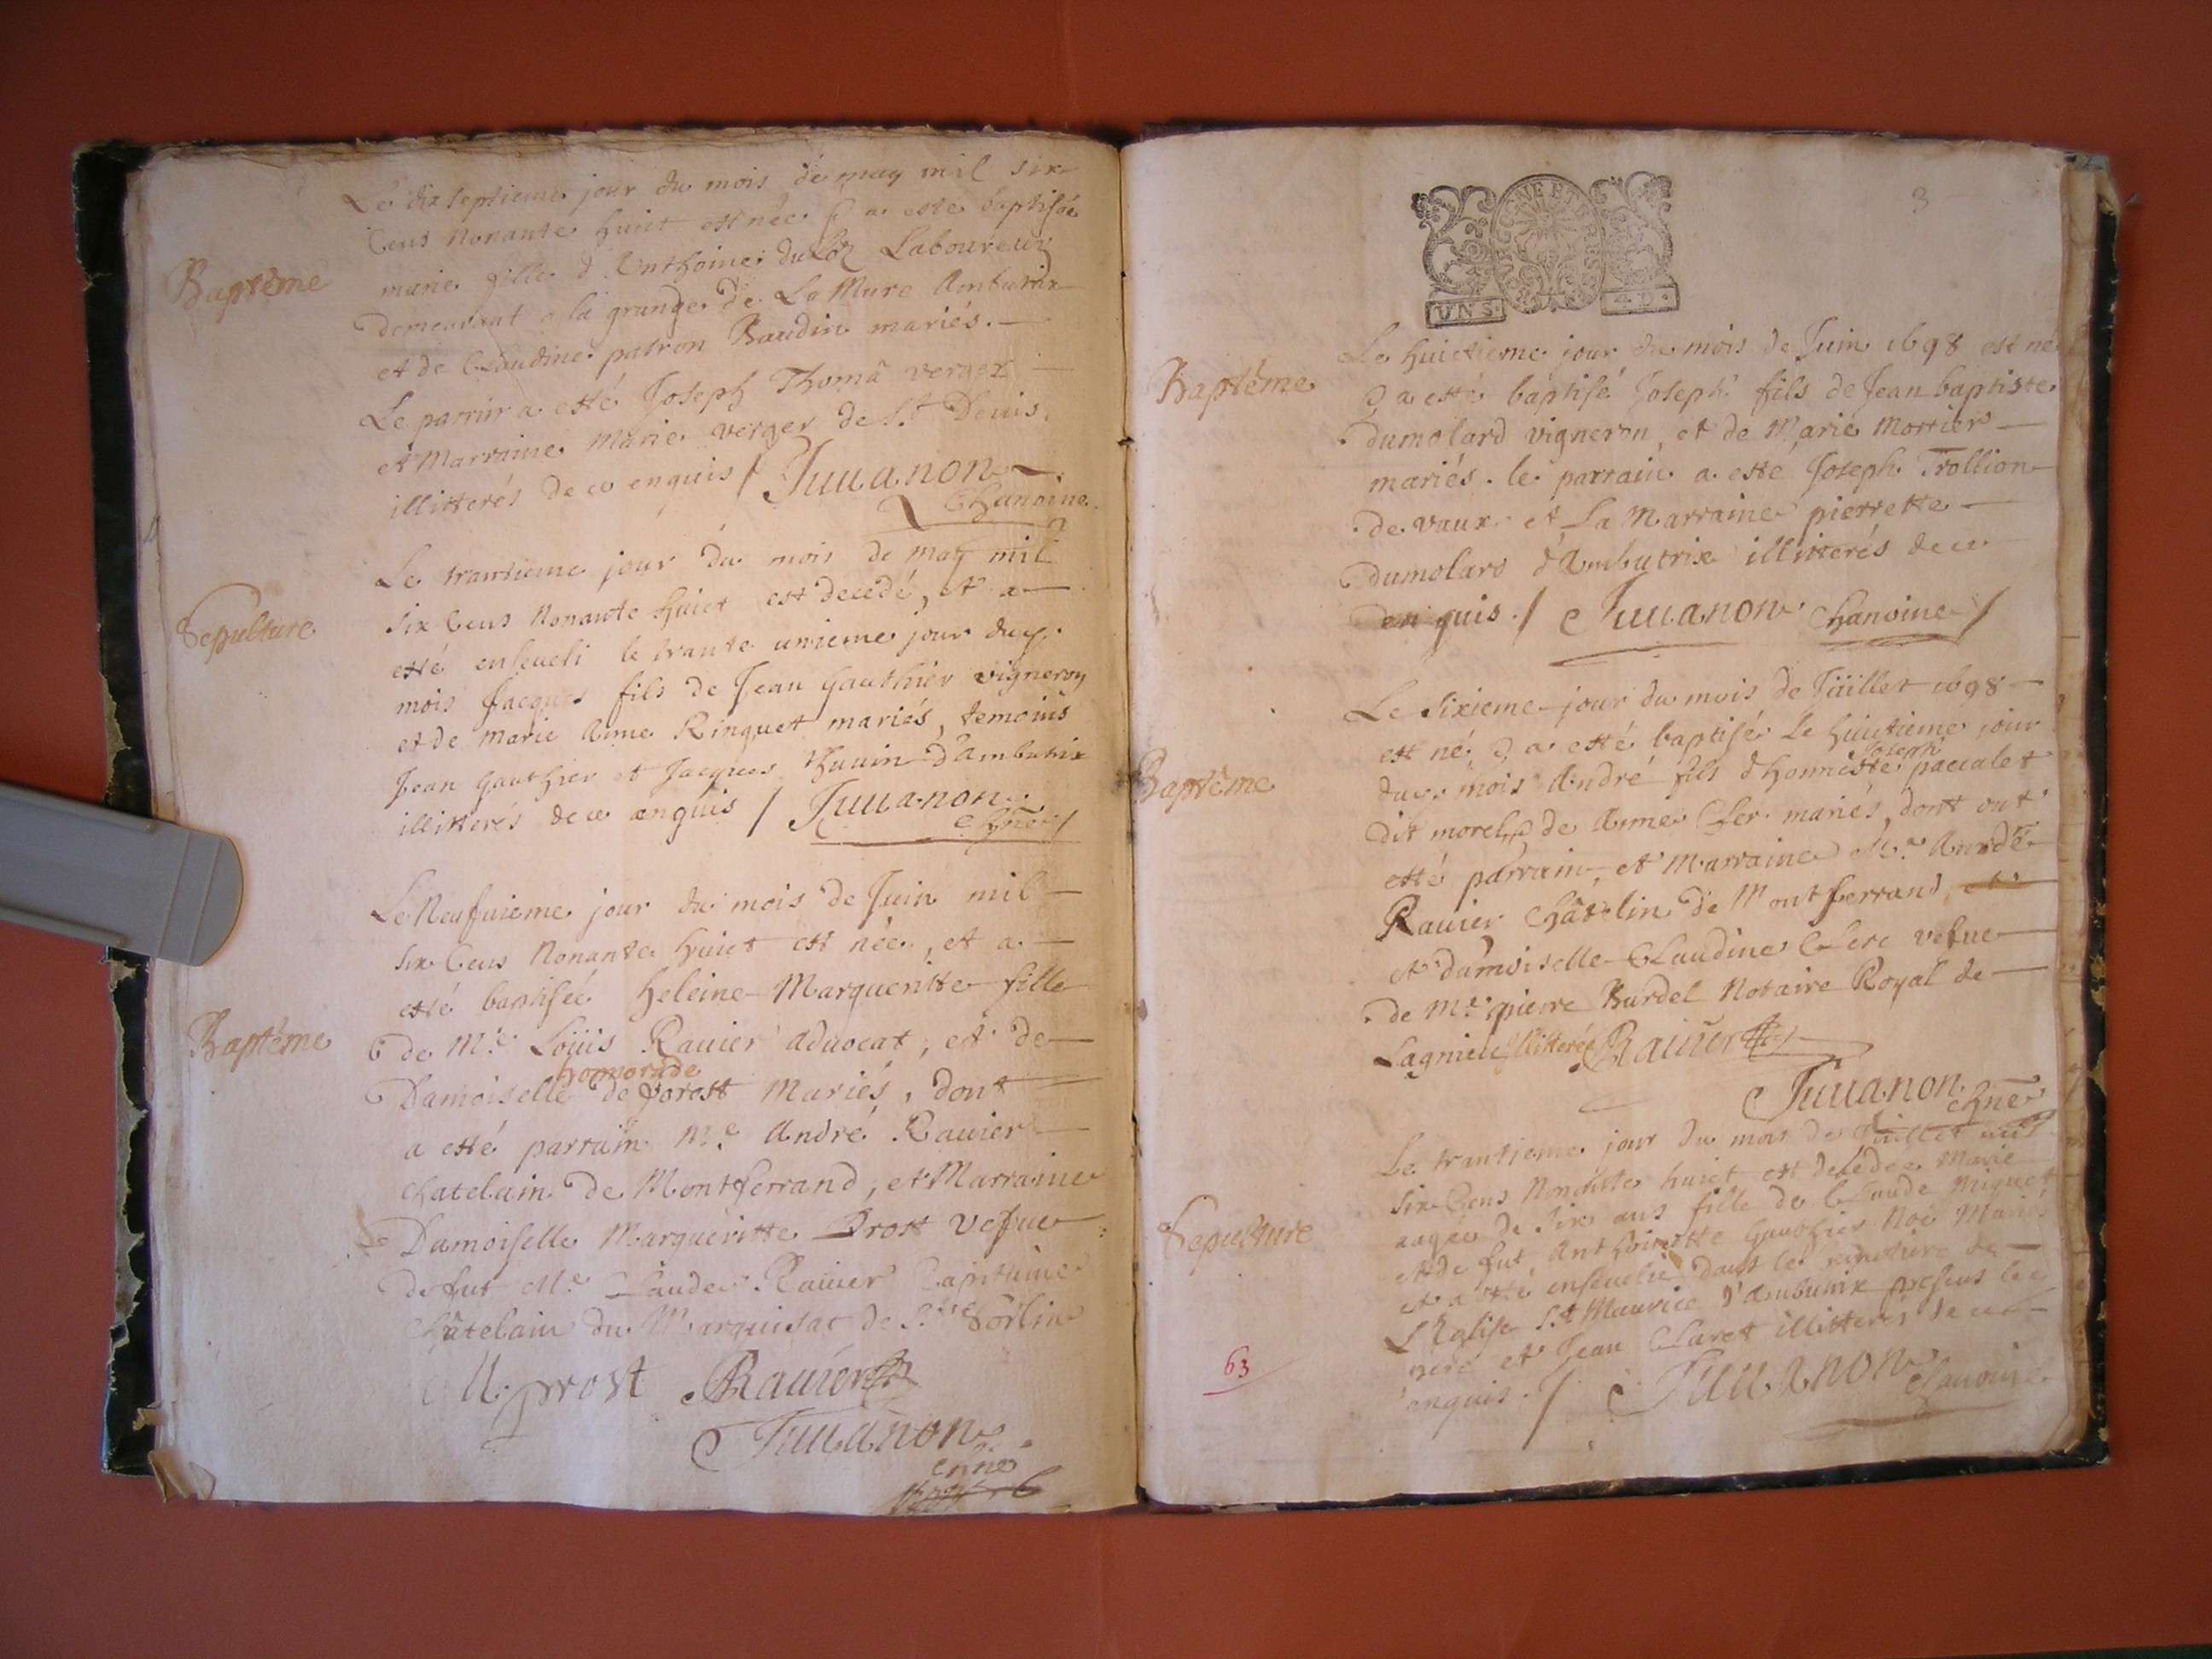 Le dix septieme jour du mois de may mil six
Cens Nonante huict est née & a esté baptisée
Baptême
marie fille d'Anthoine du Loz Laboureur
demeurant a la grange de La Mure Ambutrix
et de Claudine patron Baudin mariés.
Le parrin a esté Joseph Thomâ verger
et Marraine Marie verger de St Denis.
illitterés de ce enquis / Juuanon
Chanoine.
Le trantieme jour du mois de may mil
Sepulture
six Cens Nonante huict est decedé, et a
esté enseueli le trante unieme jour du
mois Jacques fils de Jean Gauthier vigneron
et de Marie Anne Rinquet mariés, temoins
Jean Gauthier et Jacques thuuin d'Ambutrix
illitterés de ce anquis / Juuanon
chne /
Le Neufuieme jour du mois de Juin mil
six Cens Nonante huict est née, et a
esté baptiséé heleine Margueritte fille
Baptême
de Me Loüis Rauier aduocat, et de
honnorade
Damoiselle de forest Mariés, dont
a esté parrain Me André Rauier
chatelain de Montferrand, et Marraine
Damoiselle Margueritte Prost vefue
de fut Me Claude Rauier Capitaine
Châtelain du Marquisat de St Sorlin
M. prost Rauier
Juuanon
chne
3
UN S. 4 D.
Le huictieme jour du mois de Juin 1698 est né
Baptême
& a esté baptisé Joseph fils de Jean baptiste
dumolard vigneron, et de Marie Mortier
mariés. le parrain a esté Joseph Trollion
de vaux et La Marraine pierrette
dumolard d'Ambutrix illitterés de ce
enquis. / Juuanon Chanoine /
Le Sixieme jour du mois de Juillet 1698
est né, & a esté baptisé Le huictieme jour
Baptême
Joseph
du mois André fils d'honneste paccalet
dit morel, & de Anne Cler mariés, dont ont
esté parrain, et Marraine Me André
Rauier Châtelin de Montferrand, et
et damoiselle Claudine Clerc vefue
de Me pierre Burdel Notaire Royal de
Lagnieu illitterée Rauier
Juuanon
chne
Le trantieme jour du mois de Juillet mil
six Cens Nonante huict est decedee Marie
Sepulture
aagée de six ans fille de Claude Miguet
et de fut Anthoinette Gauthier Noé Mariés
et a esté enseuelie dans le cimetiere de
L'Eglise St Maurice d'Ambutrix presens le
pere et Jean Claret illitteres de ce
63
enquis. / Juuanon
Chanoine